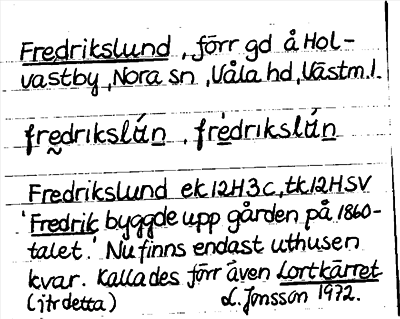 Fredrikslund, förr gd å Hol-
vastby, Nora sn, Våla hd, Västm.l.
fredrikslún, frédrikslún
Fredrikslund ek 12H3c, tk 12HSV
'Fredrik byggde upp gården på 1860-
talet.' Nu finns endast uthusen
kvar. Kallades förr även Lortkärret
(jtr detta) L. Jonsson 1972.